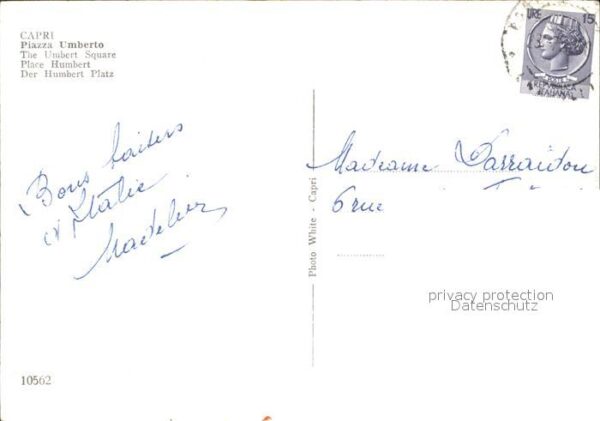 CAPRI
Piazza Umberto
The Umbert Square
Place Humbert
Der Humbert Platz
LIRE 15
REPUBBLICA
ITALIANA
Bons baisers
d'Italie
Madame Larraidou
6 rue
Photo White - Capri
privacy protection
Datenschutz
10562